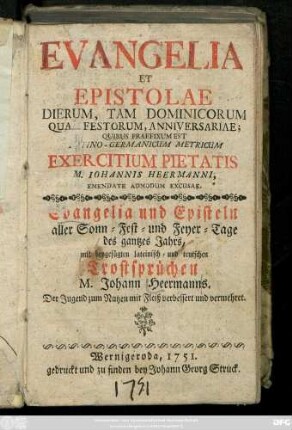 EVANGELIA
ET
EPISTOLAE
DIERUM, TAM DOMINICORUM
QUA FESTORUM, ANNIVERSARIAE;
QUIBUS PRAEFIXUM EST
INO-GERMANICUM METRICUM
EXERCITIUM PIETATIS
M. JOHANNIS HEERMANNI,
EMENDATE ADMODUM EXCUSAE.
Evangelia und Episteln
aller Sonn- Fest- und Feyer-Tage
des gantzen Jahrs,
mit beygefügten lateinisch- und teutschen
Trostsprüchen
M. Johann Heermanns.
Der Jugend zum Nutzen mit Fleiß verbessert und vermehret.
Wernigeroda, 1751.
gedruckt und zu finden bey Johann Georg Struck.
1751